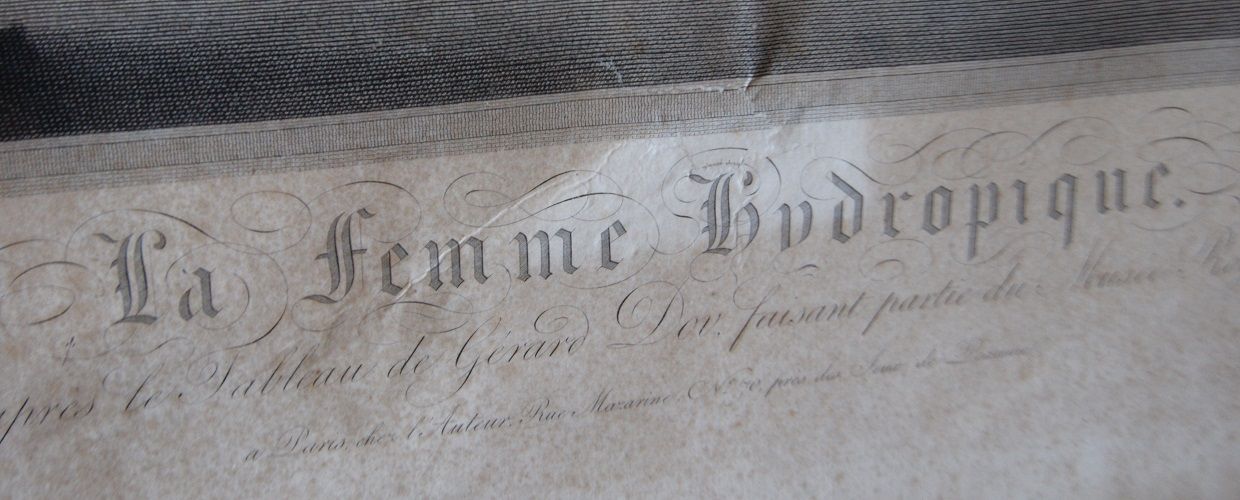 La Femme Hydropique.
après le Tableau de Gérard Dov, faisant partie du Musée
à Paris, chez l'Auteur, Rue Mazarine, N° 70, près des